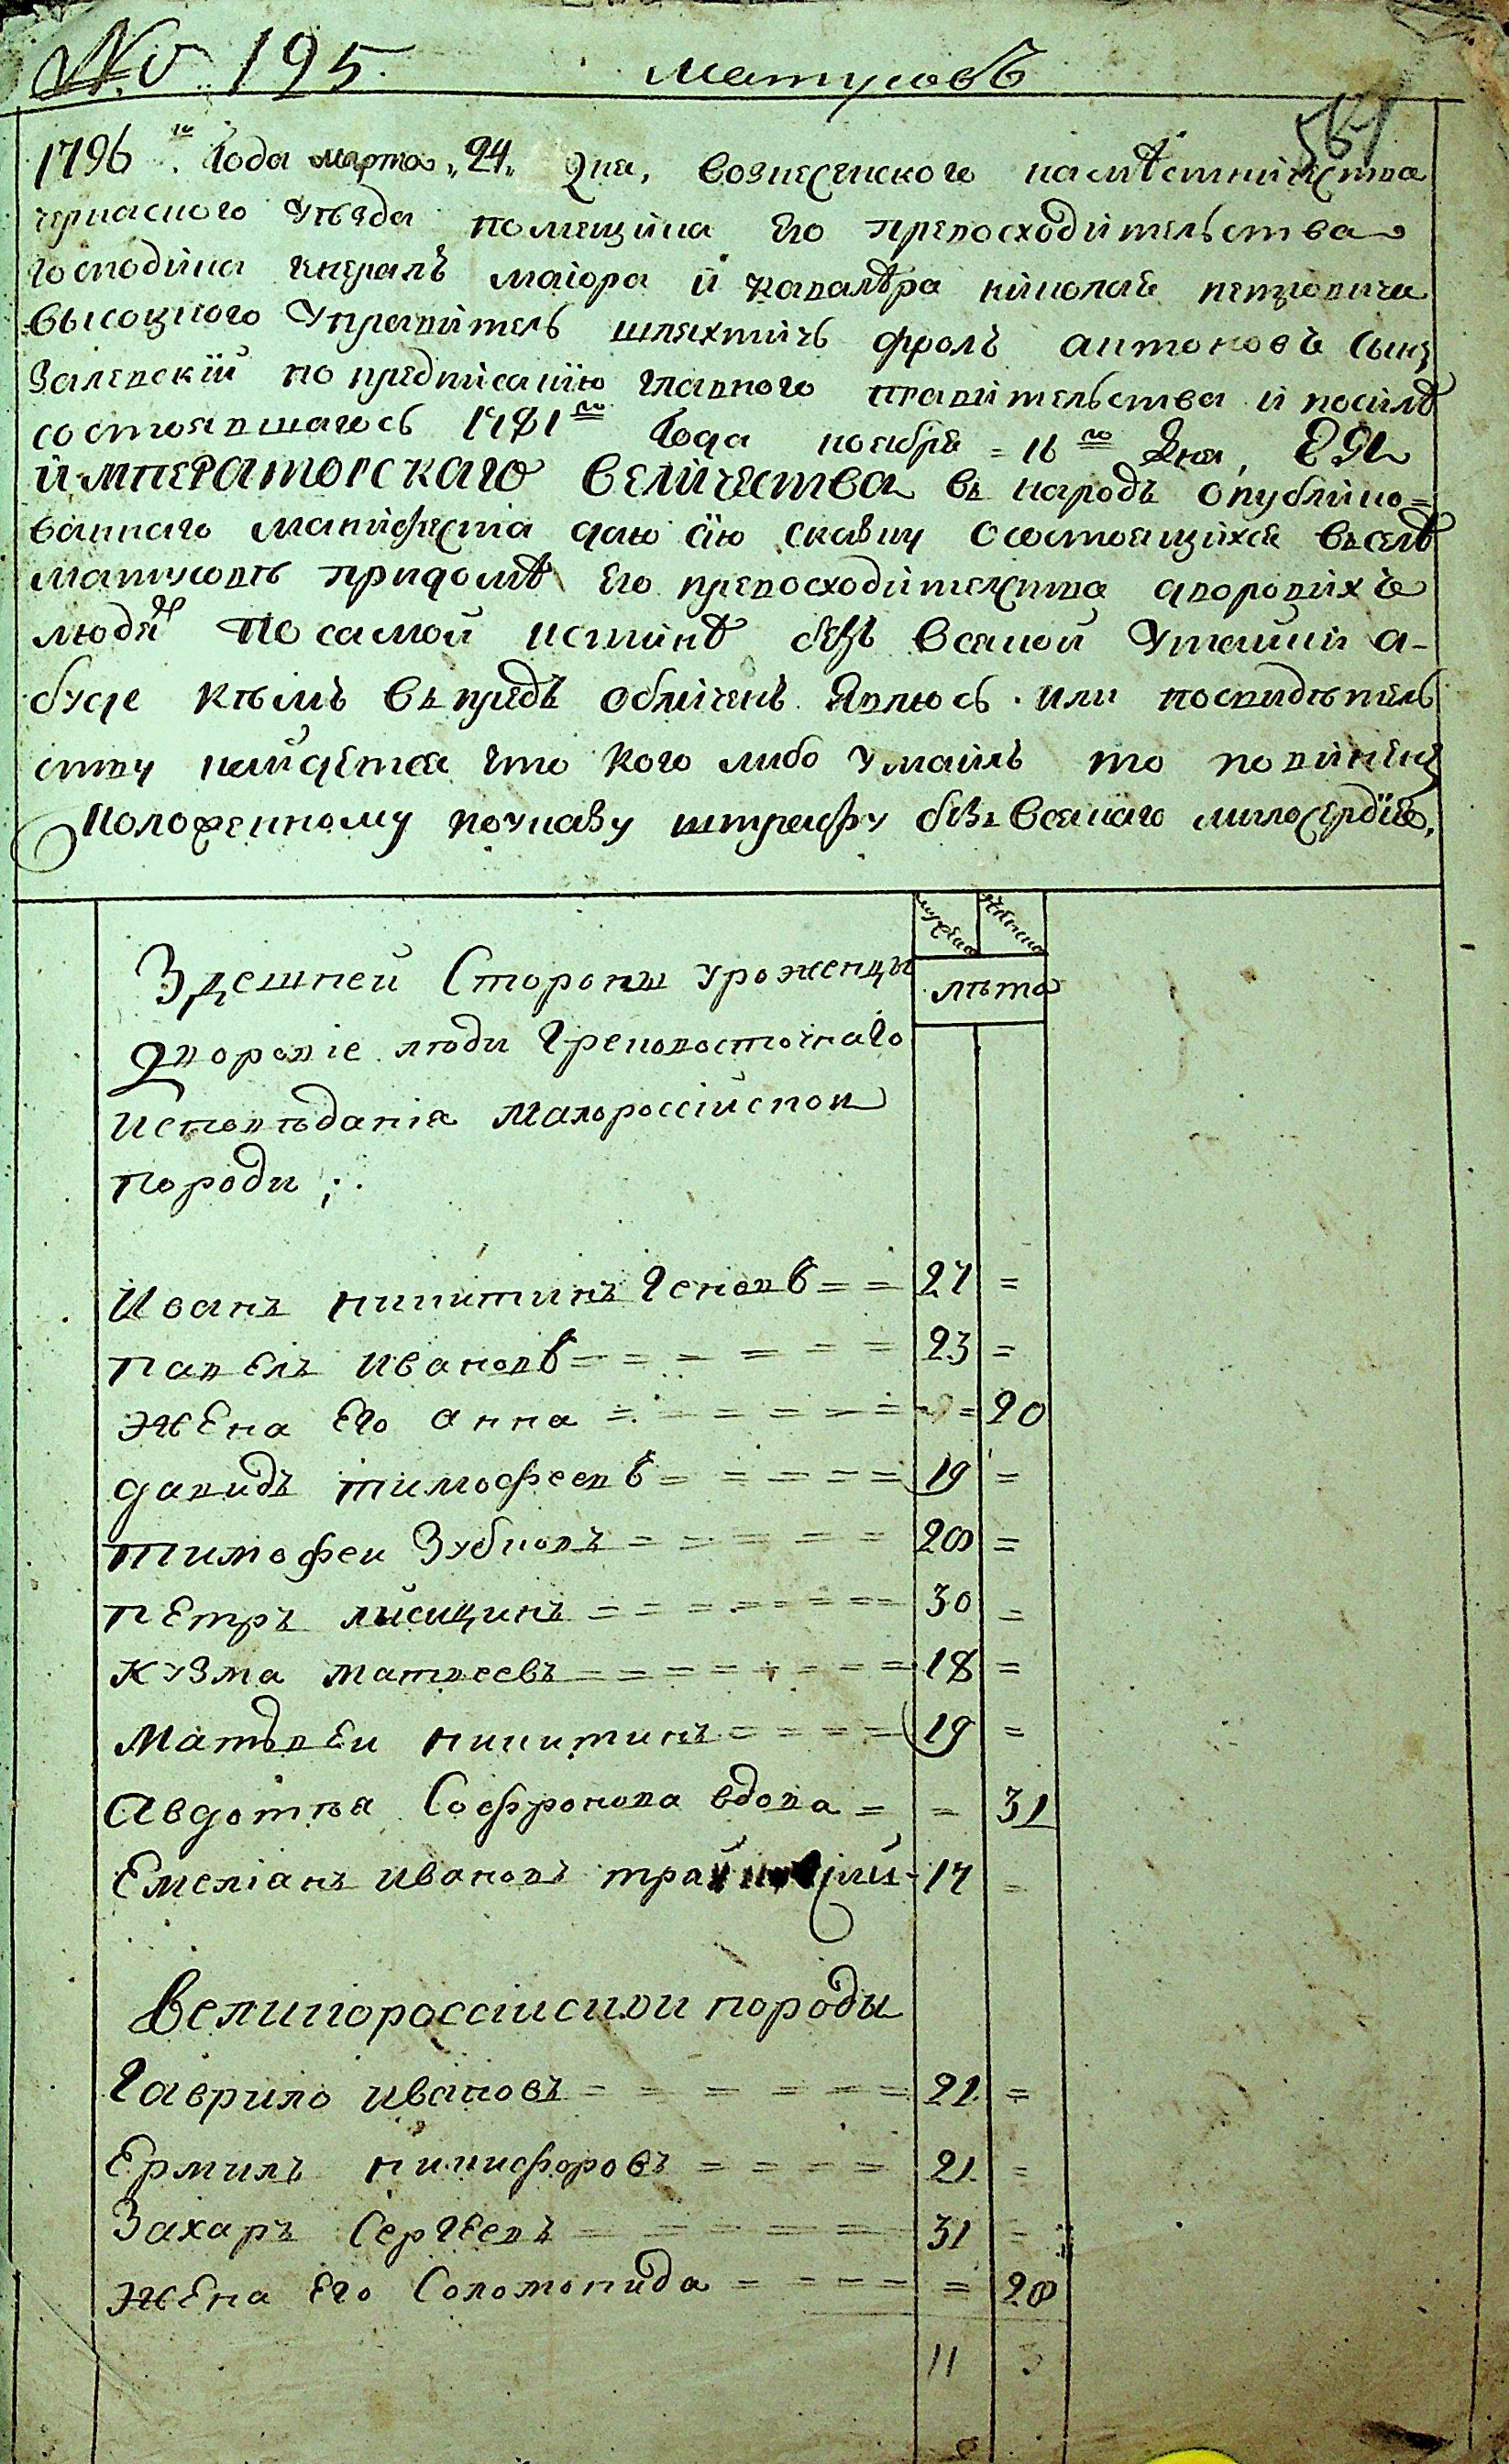 No 195. матусовъ
561
1796го. Года марта „24„ Дня, вознесенского наместничества
черкаского уъзда помещика Его превосходительства
господина генералъ маиора и кавалѣра николая петровича
высоцкого управитель шляхтичь фролъ антоновъ сынъ
Залевский по предписанию главного правительства и посилѣ
состоявшагось 1781го Года ноября = 16го Дня, ЕЯ
императорскаго величества въ народъ опублико=
ваннаго манифеста даю сию скаску о состоящихся въ селѣ
матусовъ придомѣ Его превосходителства дворовихъ
людей По самой истинѣ безъ всякой утайки а-
буде къмъ въ предъ обличенъ Явлюсь. или посвидътель
ству найдется что кого либо утаилъ то повиненъ
положенному поуказу штрафу безъ всякаго милосердия,
мужеска женска
Здешней Стороны уроженцы лъта
Дворовіе люди Грековосточнаго
исповъданія Малороссійской
породи;.
Иванъ никитинъ Геновъ = = 27 =
павелъ ивановъ = = = = = = 23 =
жена Его анна = = = = = = = 20
давидъ тимофеевъ = = = = = 19 =
тимофеи Зубковъ = = = = = 20 =
пЕтръ лисицинъ = = = = = = = 30 =
кузма матвеевъ = = = = = = = 18 =
матъвЕи никитинъ = = = = 19 =
Авдотъя Софронова вдова = = 31
Емеліанъ ивановъ 17 =
великороссіиской породы
Гаврило ивановъ = = = = = = 21. =
Ермилъ никифоровъ = = = = 21. =
Захаръ СергЕевъ = = = = = 31 =
жена Его Соломонида = = = = = 20
11 3